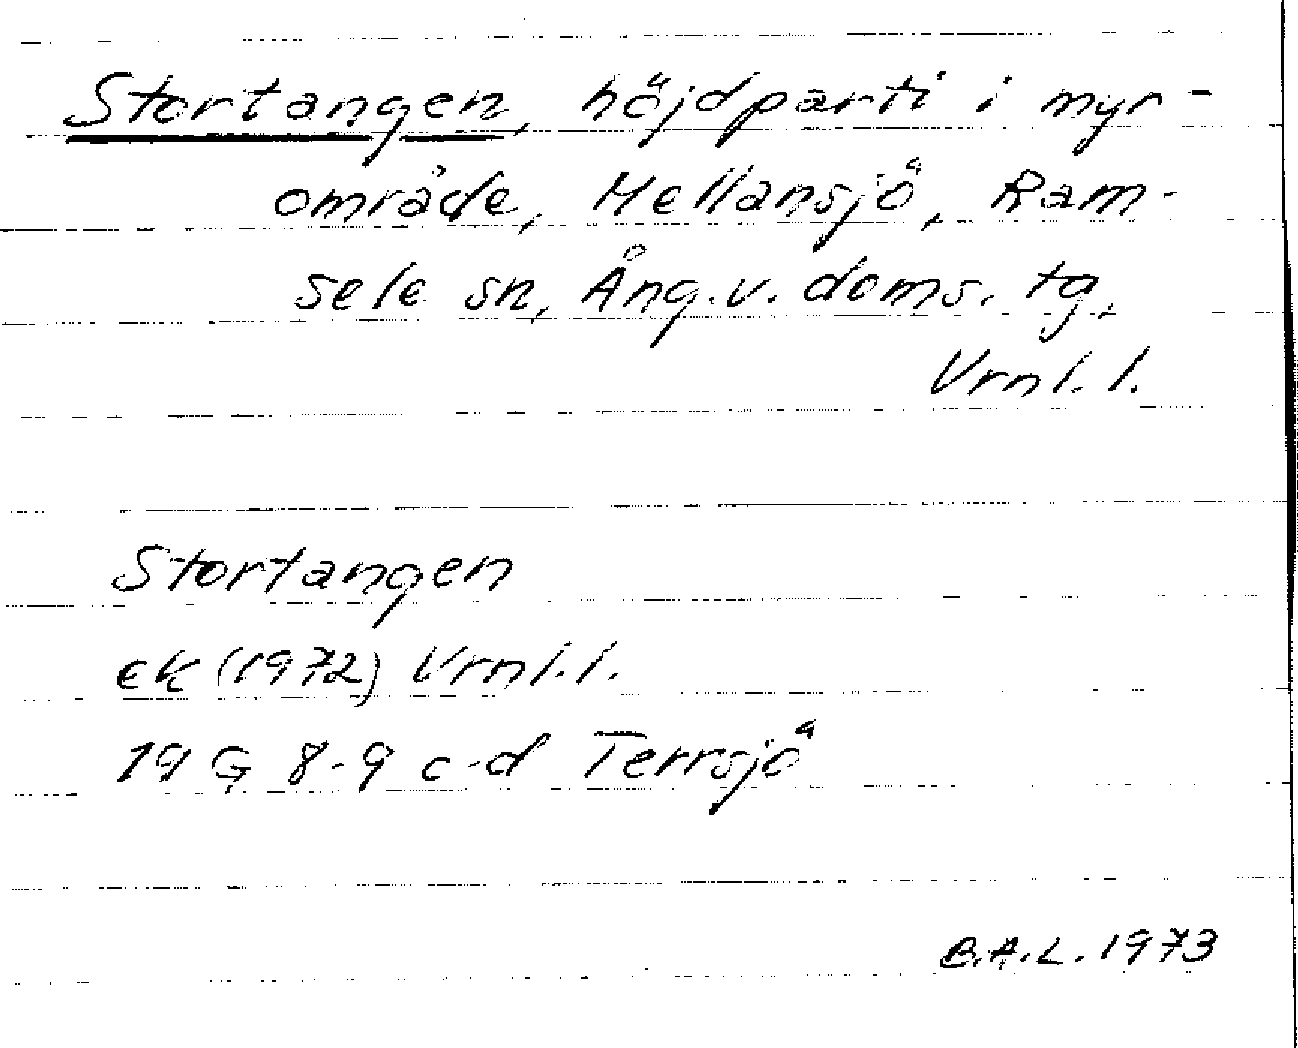 Stortangen, höjdparti i myr-
område, Mellansjö, Ram-
sele sn, Ång. v. doms. tg,
Vrnl. l.
Stortangen
ek (1972) Vrnl. l.
19 G 8-9 c-d Terrsjö
B.A.L. 1973